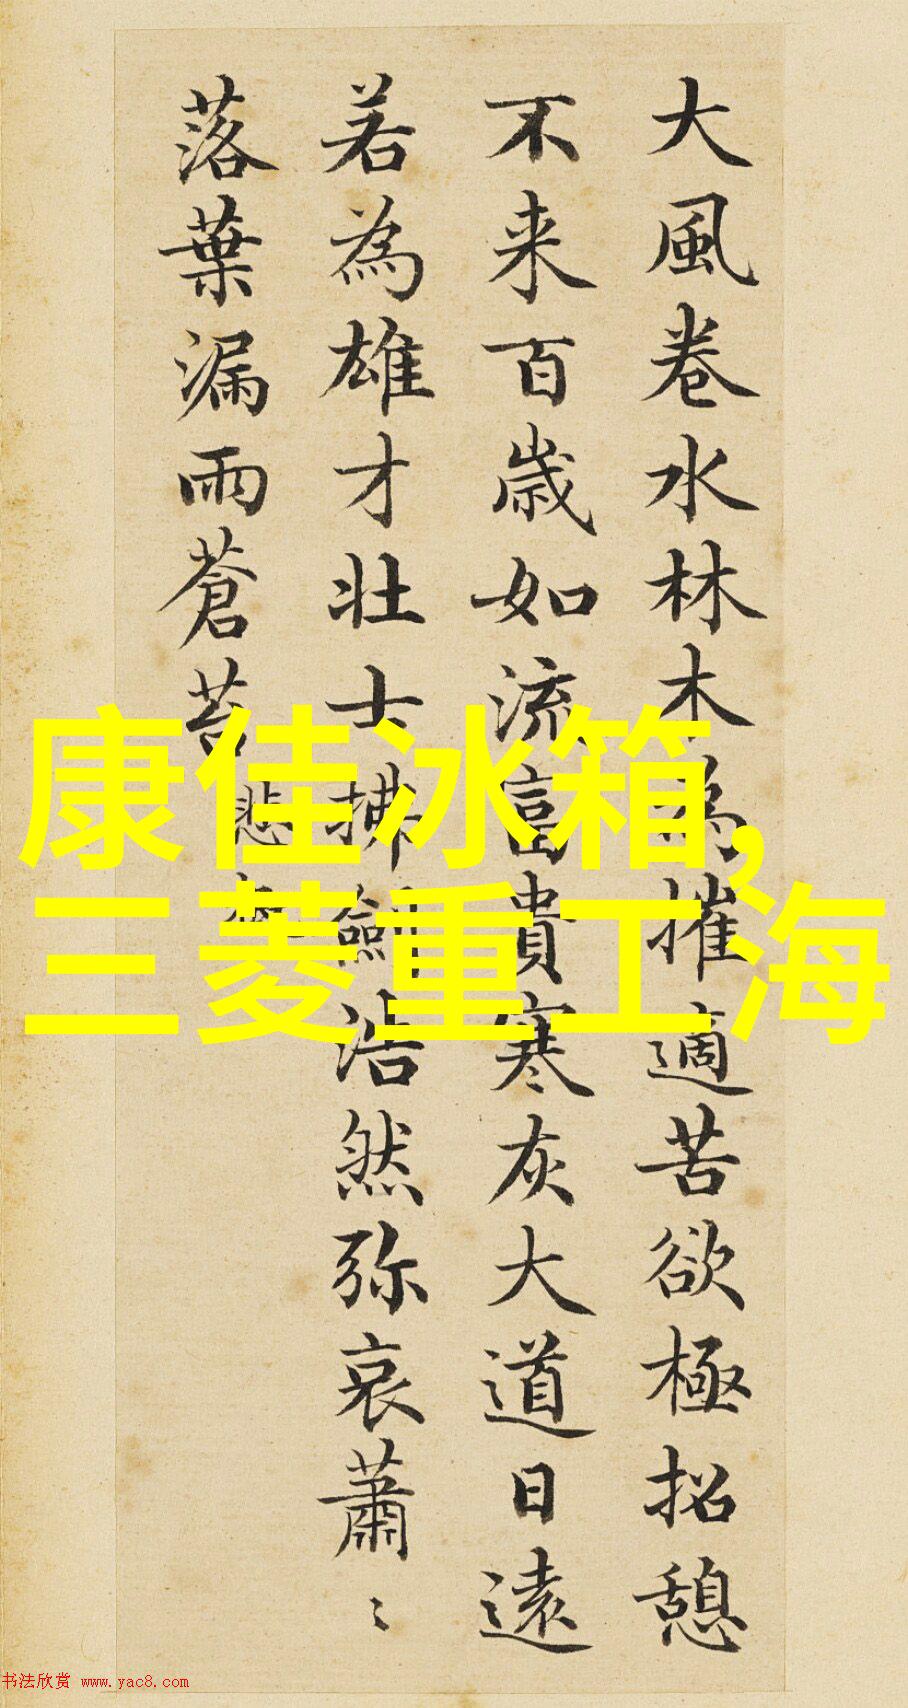 大風卷水林木為摧適苦欲極招憩
不来百歳如流富貴寒灰大道日遠
若為雄才壮士拂劍浩然弥哀蕭〻
落葉漏雨蒼苔
悲慨
康佳冰箱,
三菱重工海
书法欣赏 www.yac8.com